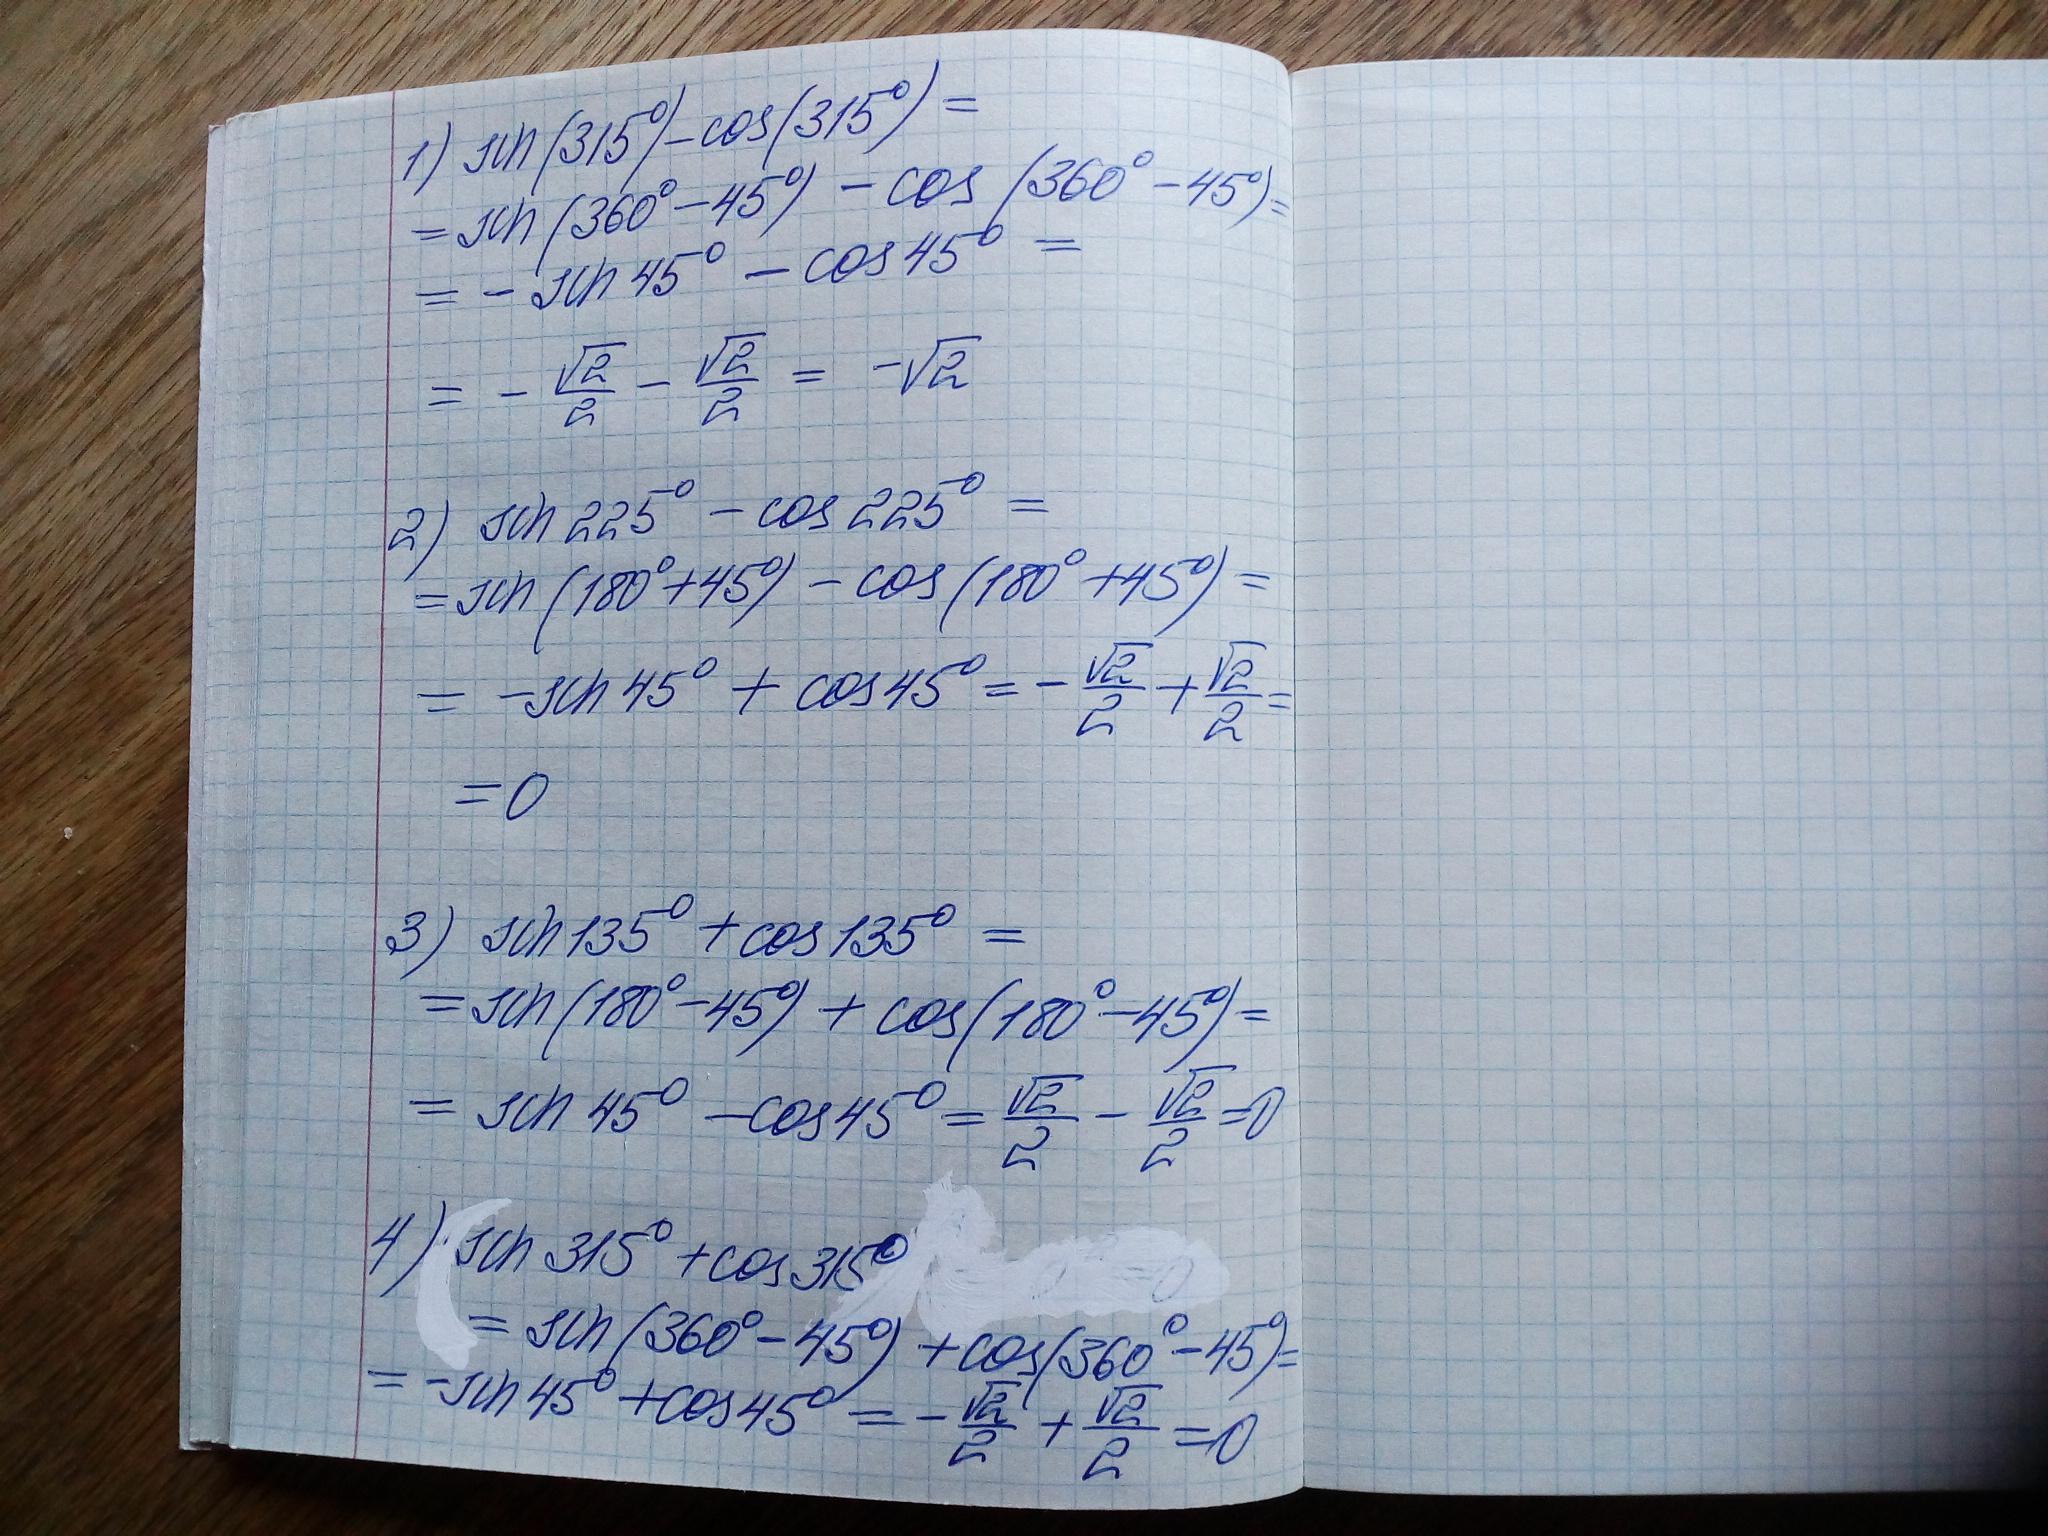 1) sin(315°)-cos(315°)=
=sin(360°-45°) - cos (360°-45°)=
= - sin 45° - cos 45° =
= - √2/2 - √2/2 = -√2
2) sin 225° - cos 225° =
=sin (180°+45°) - cos (180°+45°) =
= -sin 45° + cos 45° = - √2/2 + √2/2 =
=0
3) sin 135° + cos 135° =
= sin(180°-45°) + cos(180°-45°) =
= sin 45° - cos 45° = √2/2 - √2/2 =0
4) sin 315° + cos 315°
= sin (360°-45°) + cos(360°-45°)=
= -sin 45° + cos 45° = - √2/2 + √2/2 =0